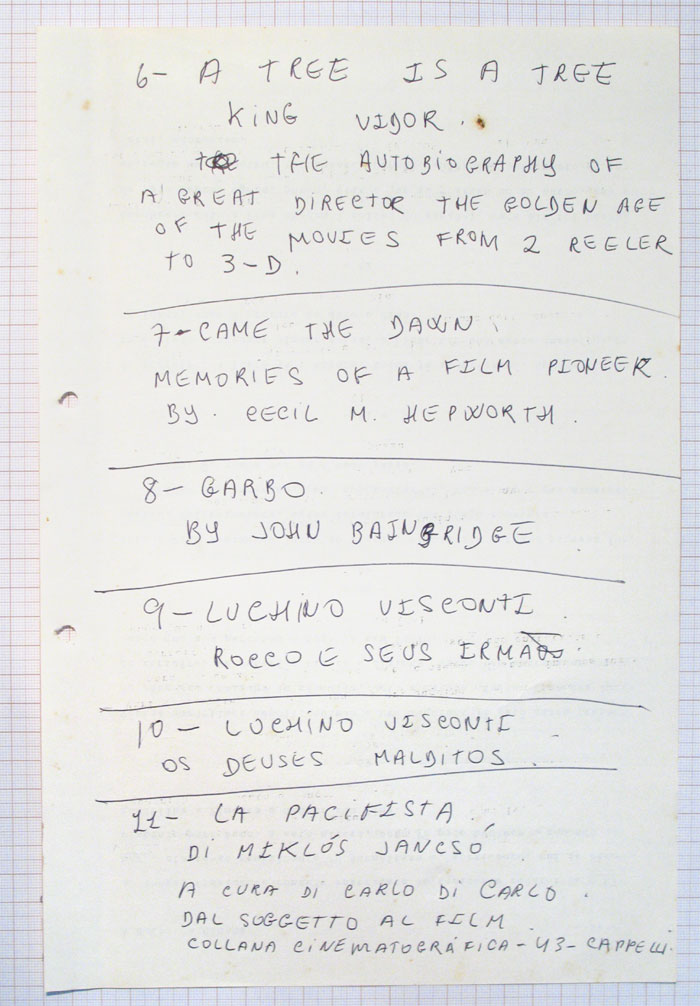 6- A TREE IS A TREE
KING VIDOR.
THE AUTOBIOGRAPHY OF
A GREAT DIRECTOR THE GOLDEN AGE
OF THE MOVIES FROM 2 REELER
TO 3-D.
7- CAME THE DAWN.
MEMORIES OF A FILM PIONEER.
BY. CECIL M. HEPWORTH.
8- GARBO.
BY JOHN BAINBRIDGE
9- LUCHINO VISCONTI.
ROCCO E SEUS IRMÃOS.
10- LUCHINO VISCONTI
OS DEUSES MALDITOS.
11- LA PACIFISTA.
DI MIKLÓS JANCSÓ
A CURA DI CARLO DI CARLO.
DAL SOGGETTO AL FILM.
COLLANA CINEMATOGRÁFICA-43-CAPPELLI.